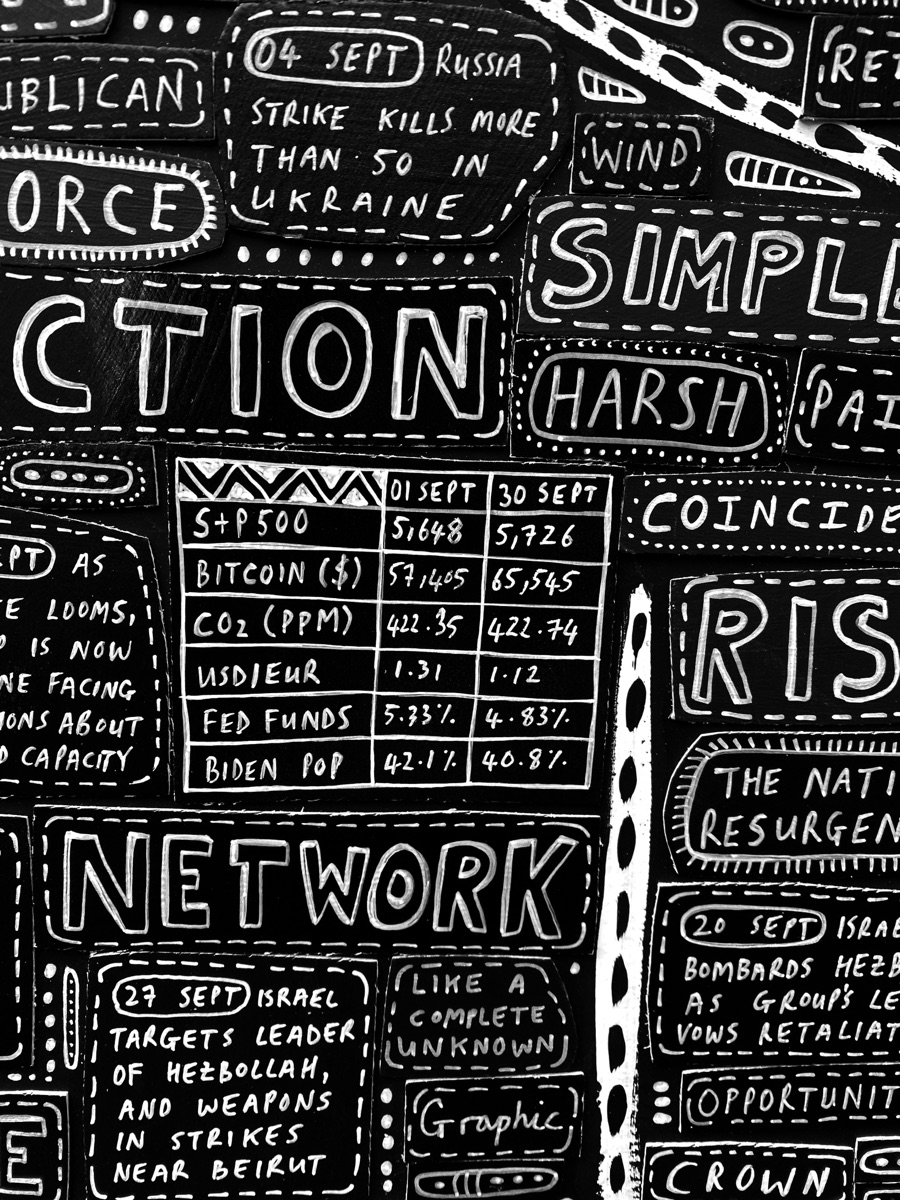 UBLICAN
04 SEPT RUSSIA
STRIKE KILLS MORE
THAN 50 IN
UKRAINE
RET
WIND
ORCE
SIMPLE
CTION
HARSH
PAI
01 SEPT 30 SEPT
S+P 500 5,648 5,726
BITCOIN ($) 57,405 65,545
CO2 (PPM) 422.35 422.74
USD/EUR 1.31 1.12
FED FUNDS 5.33% 4.83%
BIDEN POP 42.1% 40.8%
COINCIDE
EPT AS
E LOOMS,
P IS NOW
NE FACING
IONS ABOUT
D CAPACITY
RIS
THE NATI
RESURGEN
NETWORK
20 SEPT ISRAE
BOMBARDS HEZB
AS GROUP'S LE
VOWS RETALIAT
27 SEPT ISRAEL
TARGETS LEADER
OF HEZBOLLAH,
AND WEAPONS
IN STRIKES
NEAR BEIRUT
LIKE A
COMPLETE
UNKNOWN
Graphic
OPPORTUNIT
E
CROWN